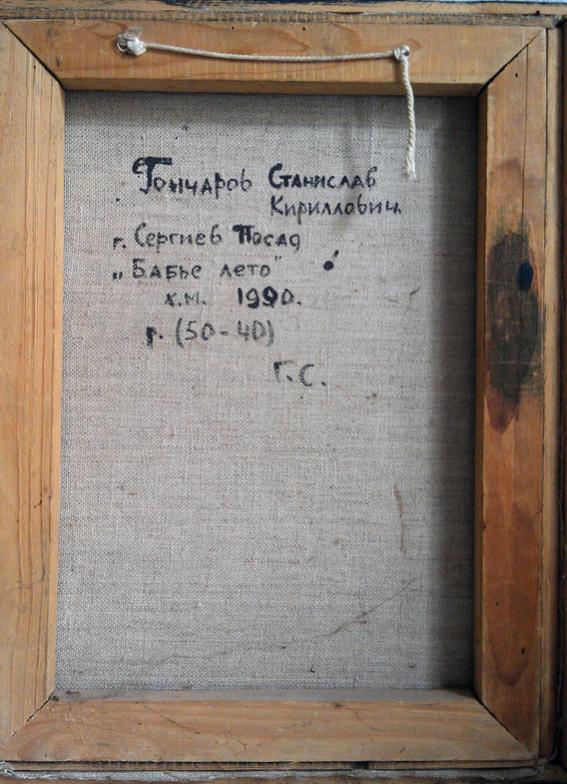 Гончаров Станислав
Кириллович.
г. Сергиев Посад
„Бабье лето"
х.м. 1990.
р. (50-40)
Г.С.